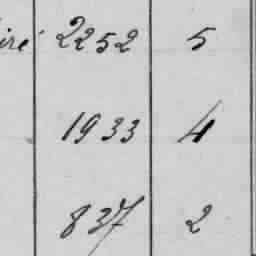 iré 2252 5
1933 4
837 2